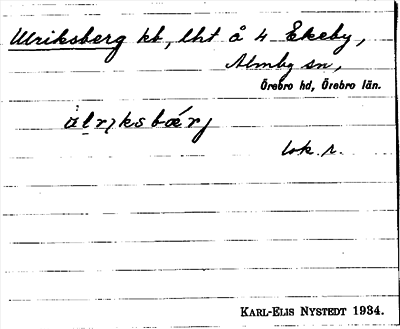 Ulriksberg kb, lht å 4 Ekeby,
Almby sn,
Örebro hd, Örebro län.
lok. r.
KARL-ELIS NYSTEDT 1934.